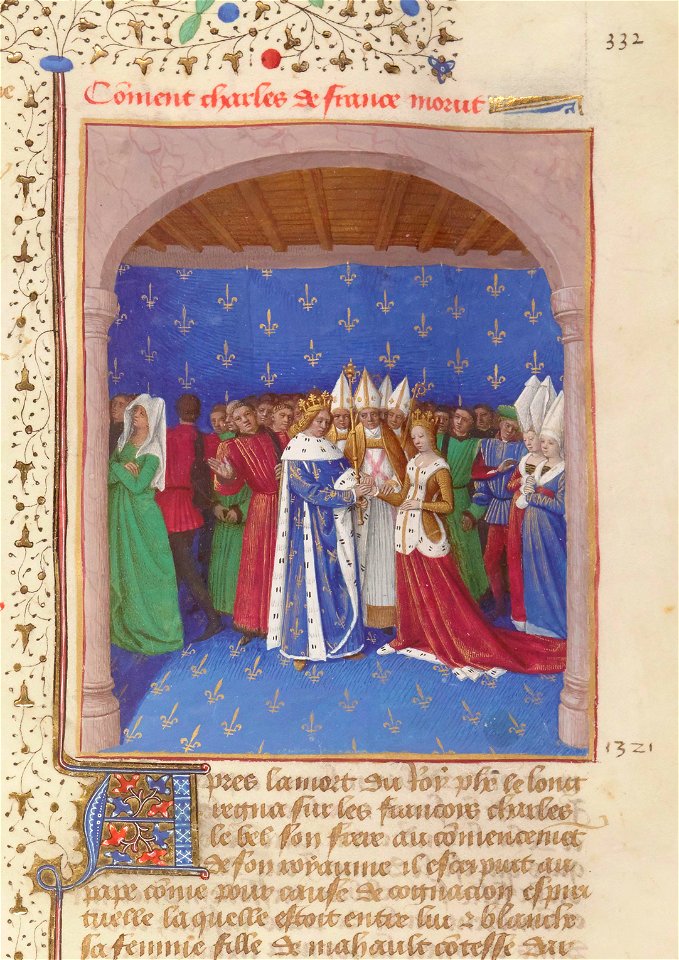 332
Cōment charles de france morut
1321
Apres la mort du Roy phē le long
regna sur les francois charles
le bel son frere au cōmencemēt
de son royaume il escripuit au
pape cōme pour cause de cognacion espiri
tuelle laquelle estoit entre lui & blanche
sa femme fille de mahault cōtesse dar